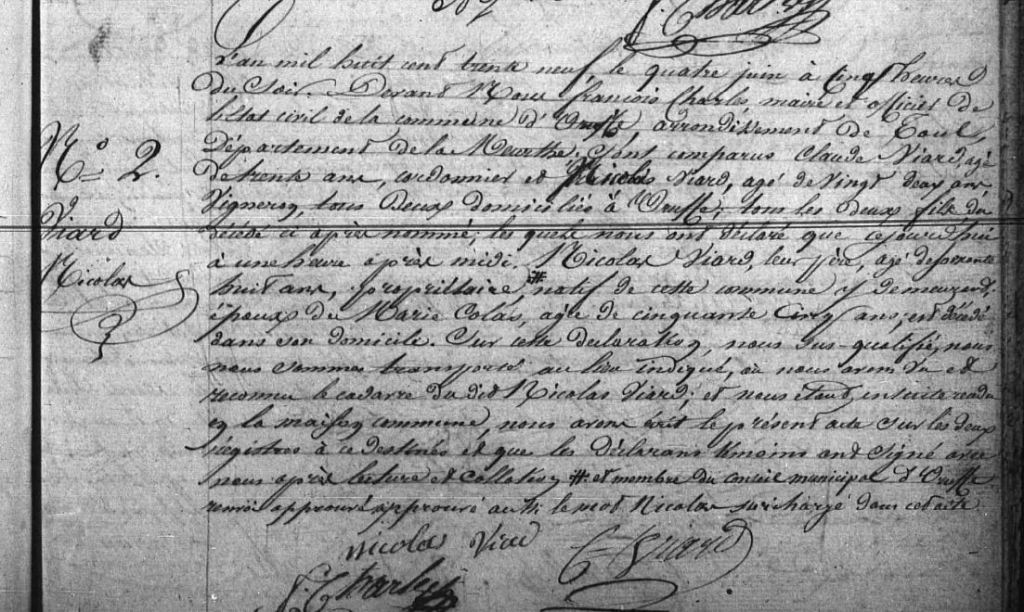 F. Charles
L'an mil huit cent trente neuf, le quatre juin à cinq heures
du soir. Devant Nous françois Charles, maire et officier de
l'état civil de la commune d'Uruffe, arrondissement de Toul,
Département de la Meurthe, sont comparus Claude Viard, agé
de trente ans, cordonnier et Nicolas Viard, agé de vingt deux ans,
Vigneron, tous deux domiciliés à Uruffe; tous les deux fils du
décédé ci après nommé; les quels nous ont déclaré que cejourd'hui
à une heure après midi. Nicolas Viard, leur père, agé de soixante
huit ans, propriétaire, # natif de cette commune y demeurant,
époux de Marie Colas, agée de cinquante cinq ans, est décédé
dans son domicile. Sur cette déclaration, nous sus-qualifié, nous
nous sommes transporté au lieu indiqué, où nous avons vu et
reconnu le cadavre du dit Nicolas Viard; et nous étant ensuite rendu
en la maison commune, nous avons écrit le présent acte sur les deux
régistres à ce destinés et que les déclarans témoins ont signé avec
nous après lecture et collation # et membre du conseil municipal d'Uruffe
renvoi approuvé approuvé aussi le mot Nicolas surchargé dans cet acte
N.o 2.
Viard
Nicolas
nicolas Viard C Viard
F. Charles